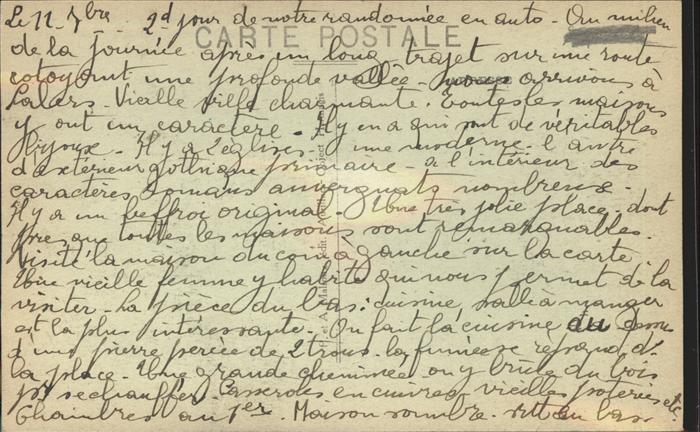 Le 11 7bre - 2d jour de notre randonnée en auto - Au milieu
CARTE POSTALE
de la journée après un long trajet sur une route
cotoyant une profonde vallée - nous arrivons à
Salers - Vieille ville charmante. Toutes les maisons
y ont un caractère - Il y en a qui sont de véritables
bijoux - Il y a 2 églises - une moderne - l'autre
d'extérieur gothique primaire - à l'intérieur des
caractères romans auvergnats nombreux -
Il y a un beffroi original - Une très jolie place - dont
presque toutes les maisons sont remarquables.
Visité la maison du coin à gauche sur la carte.
Une vieille femme y habite qui nous permet de la
visiter - La pièce du bas : cuisine, salle à manger
est la plus intéressante - On fait la cuisine au dessus
d'une pierre percée de 2 trous. la fumée se repand ds
la place - Une grande cheminée, on y brûle du bois
pr se chauffer. Casseroles en cuivre, vieilles poteries etc
Chambres au 1er. Maison sombre - en bas